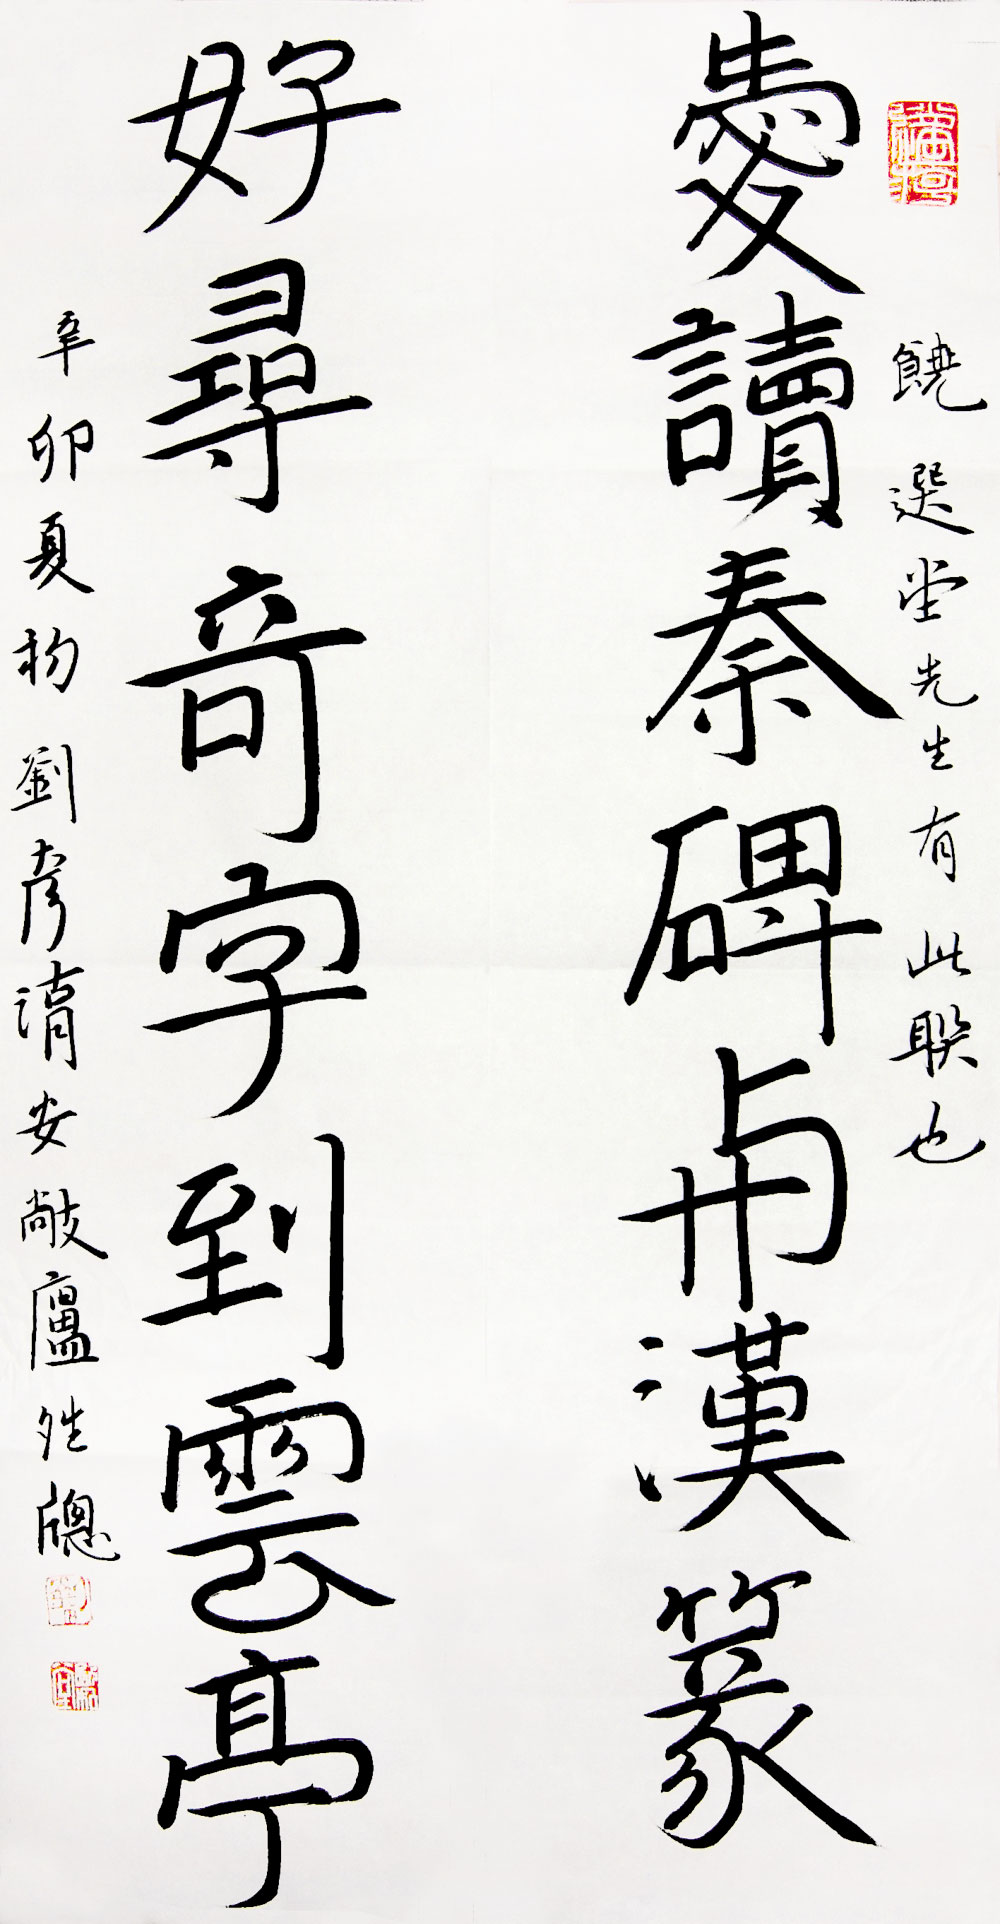 饒選堂先生有此聯也
愛讀秦碑與漢篆
好尋奇字到雲亭
辛卯夏 劉彥湖安敞廬牕